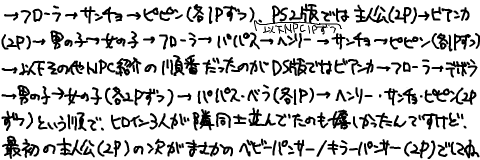 →フローラ→サンチョ→ピピン(各1Pずつ)、PS2版では主人公(2P)→ビアンカ
(2P)→男の子→女の子→フローラ→パパス→ヘンリー→サンチョ→ピピン(各1Pずつ)
以下NPC1Pずつ
→以下その他NPC紹介の順番だったのがDS版ではビアンカ→フローラ→デボラ
→男の子→女の子(各2Pずつ)→パパス・ベラ(各1P)→ヘンリー・サンチョ・ピピン(2P
ずつ)という順で、ヒロイン3人が隣同士並んでたのも嬉しかったんですけど、
最初の主人公(2P)の次がまさかのベビーパンサー/キラーパンサー(2P)でしてね